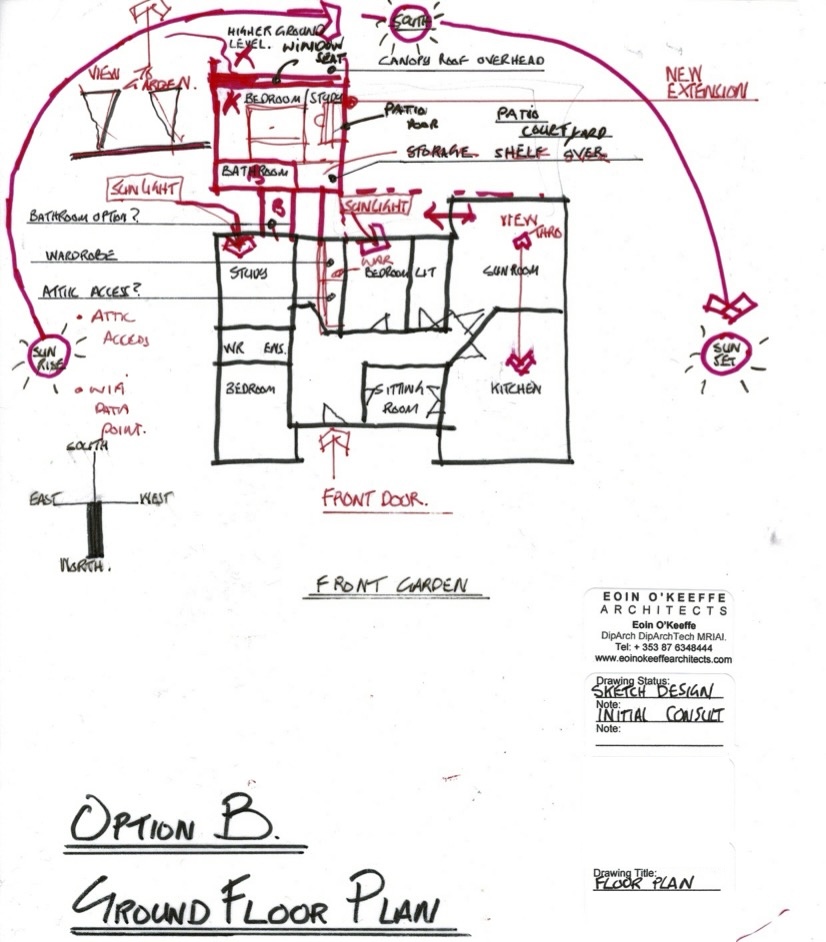 SOUTH
HIGHER GROUND
LEVEL.
WINDOW
SEAT
CANOPY ROOF OVERHEAD
VIEW
GARDEN.
NEW
EXTENSION
BEDROOM
STUDY
PATIO
DOOR
PATIO
COURTYARD
STORAGE SHELF OVER
BATHROOM
SUNLIGHT
SUNLIGHT
B
BATHROOM OPTION?
VIEW
THRO
WARDROBE
WAR
STUDY
BEDROOM
LIT
SUNROOM
ATTIC ACCESS?
• ATTIC
ACCESS
SUN
RISE
SUN
SET
WR ENS.
BEDROOM
SITTING
ROOM
KITCHEN
DATA
POINT.
SOUTH
EAST
WEST
NORTH.
FRONT DOOR.
FRONT GARDEN
EOIN O'KEEFFE
ARCHITECTS
Eoin O'Keeffe
DipArch DipArchTech MRIAI.
Tel: + 353 87 6348444
www.eoinokeeffearchitects.com
Drawing Status:
SKETCH DESIGN
Note:
INITIAL CONSULT
Note:
OPTION B.
GROUND FLOOR PLAN
Drawing Title:
FLOOR PLAN